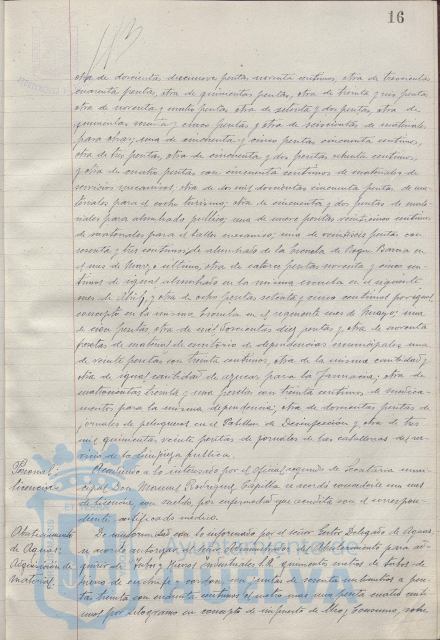 16
otra de doscientas diecinueve pesetas noventa céntimos, otra de trescientas
cuarenta pesetas, otra de quinientas pesetas, otra de treinta y seis pesetas
otra de noventa y cuatro pesetas otra de setenta y dos pesetas, otra de
y cinco pesetas y otra de seiscientas de materiales
para obras; una de cincuenta y cinco pesetas cincuenta céntimos,
otra de tres pesetas, otra de cincuenta y dos pesetas ochenta céntimos,
y otra de cuatro pesetas con cincuenta céntimos de materiales de
servicios mecánicos, otra de dos mil doscientas cincuenta pesetas de ma-
teriales para el coche turismo; otra de cincuenta y dos pesetas de mate-
riales para alumbrado público; una de nueve pesetas veinticinco céntimos
de materiales para el taller mecánico; una de veintiseis pesetas con
sesenta y tres céntimos de alumbrado de la Escuela de Roque Barcia en
el mes de Marzo último, otra de catorce pesetas noventa y cinco cén-
timos de igual alumbrado en la misma escuela en el siguiente
mes de Abril, y otra de ocho pesetas setenta y cinco céntimos por igual
concepto en la misma Escuela en el siguiente mes de Mayo; una
de cien pesetas otra de mil doscientas diez pesetas y otra de noventa
pesetas de material de escritorio de dependencias municipales una
de veinte pesetas con treinta céntimos, otra de la misma cantidad y
otra de igual cantidad de azúcar para la Farmacia; otra de
cuatrocientas treinta y una pesetas con treinta céntimos de medica-
mentos para la misma dependencia; otra de doscientas pesetas de
jornales de peluqueros en el Pabellón de Desinfección y otra de tres
mil quinientas veinte pesetas de jornales de las caballerías del ser-
vicio de la limpieza pública.
Personal:
licencia
Accediendo a lo interesado por el oficial segundo de Secretaría muni-
cipal Don Manuel Rodríguez se acordó concederle un mes
de licencia, con sueldo, por enfermedad que acredita con el correspon-
diente certificado médico.
Abastecimiento
de Aguas:
Adquisición de
material.
De conformidad con lo informado por el señor Gestor Delegado de Aguas
se acordó autorizar al señor Administrador del Abastecimiento para ad-
quirir de Tubos y Hierros Industriales S.A. quinientos metros de tubos de
hierro de enchufe y cordón, con juntas de sesenta milímetros a pe-
setas treinta con cuarenta céntimos el metro mas una peseta cuatro cén-
timos por kilogramo en concepto de impuesto de Usos y Consumos, sobre